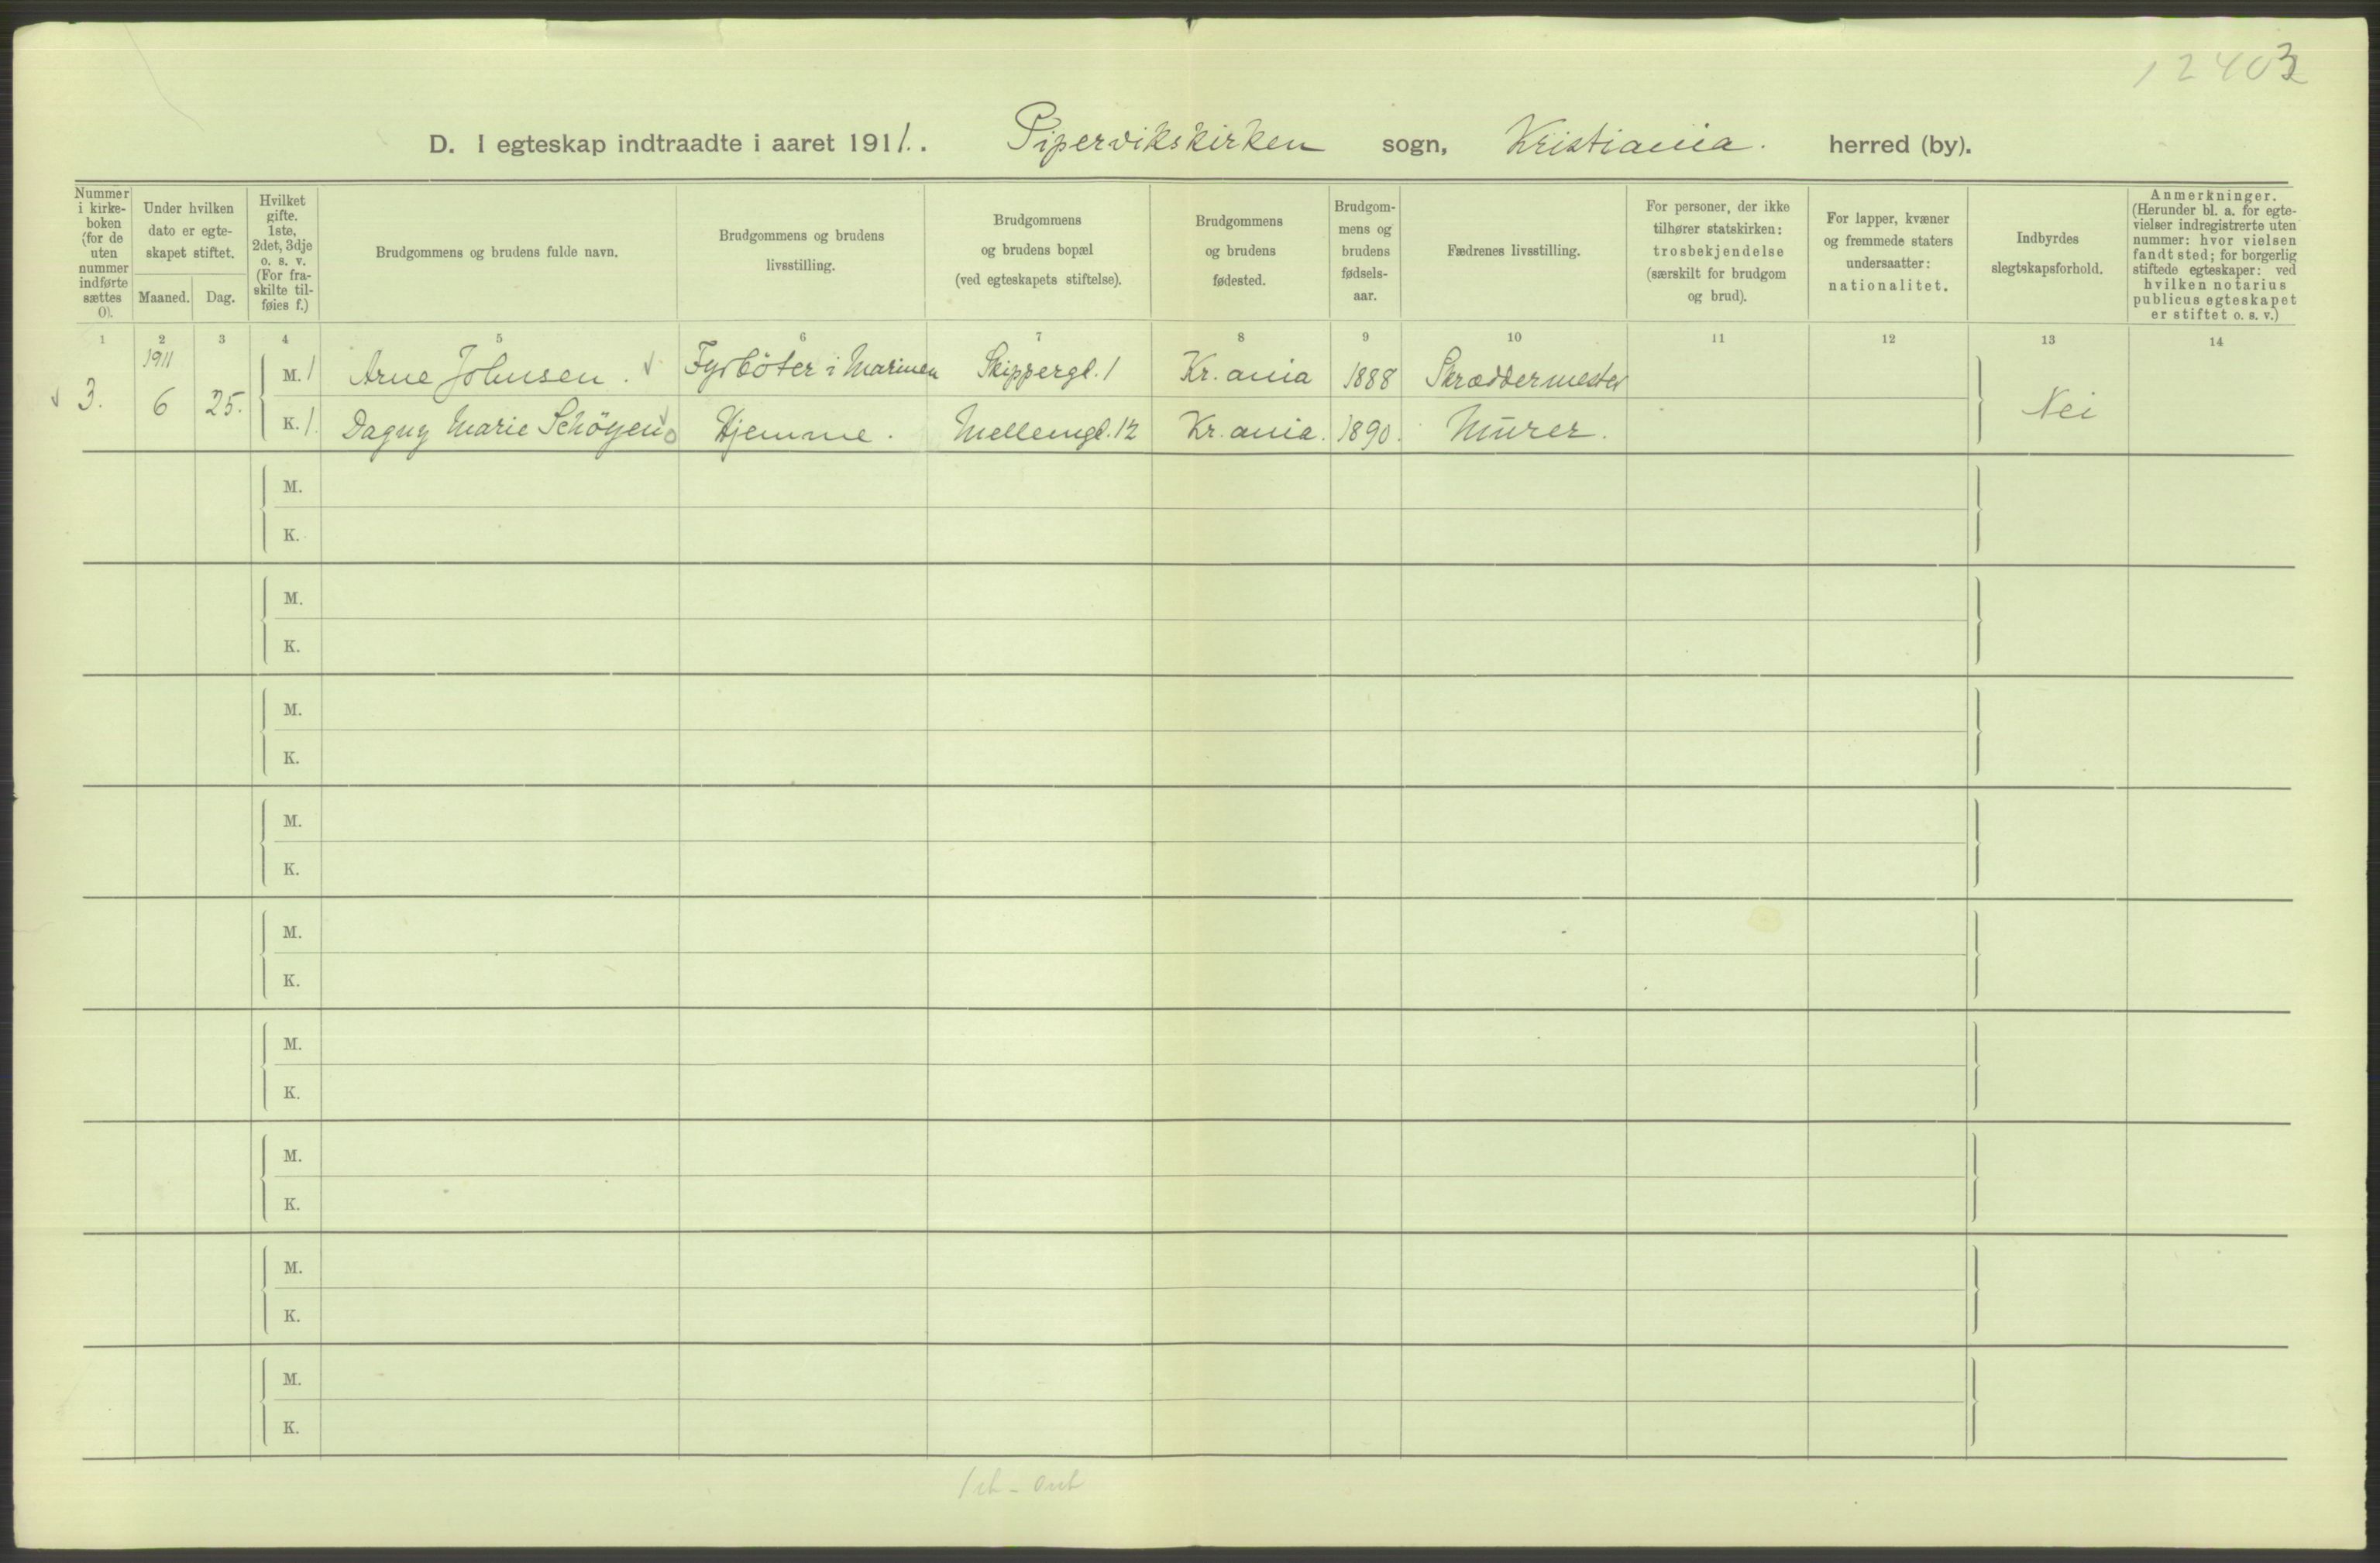 12403
D. I egteskap indtraadte i aaret 1911. Pipervikskirken sogn, Kristiania. herred (by).
Nummer i kirke- boken (for de uten nummer indførte sættes 0).
Under hvilken dato er egte- skapet stiftet.
Maaned. Dag.
Hvilket gifte. 1ste, 2det, 3dje o. s. v. (For fra- skilte til- føies f.)
Brudgommens og brudens fulde navn.
Brudgommens og brudens livsstilling.
Brudgommens og brudens bopæl (ved egteskapets stiftelse).
Brudgommens og brudens fødested.
Brudgom- mens og brudens fødsels- aar.
Fædrenes livsstilling.
For personer, der ikke tilhører statskirken: trosbekjendelse (særskilt for brudgom og brud).
For lapper, kvæner og fremmede staters undersaatter: nationalitet.
Indbyrdes slegtskapsforhold.
Anmerkninger. (Herunder bl. a. for egte- vielser indregistrerte uten nummer: hvor vielsen fandt sted; for borgerlig stiftede egteskaper: ved hvilken notarius publicus egteskapet er stiftet o. s. v.)
1 2 3 4 5 6 7 8 9 10 11 12 13 14
1911
3. 6 25. M. 1 Arne Johnsen. Fyrböter i Marinen Skippergt. 1 Kr. ania 1888 Skræddermester Nei
K. 1. Dagny Marie Schöyen Hjemme. Mellemgt. 12 Kr. ania. 1890. Murer.
M.
K.
M.
K.
M.
K.
M.
K.
M.
K.
M.
K.
M.
K.
M.
K.
M.
K.